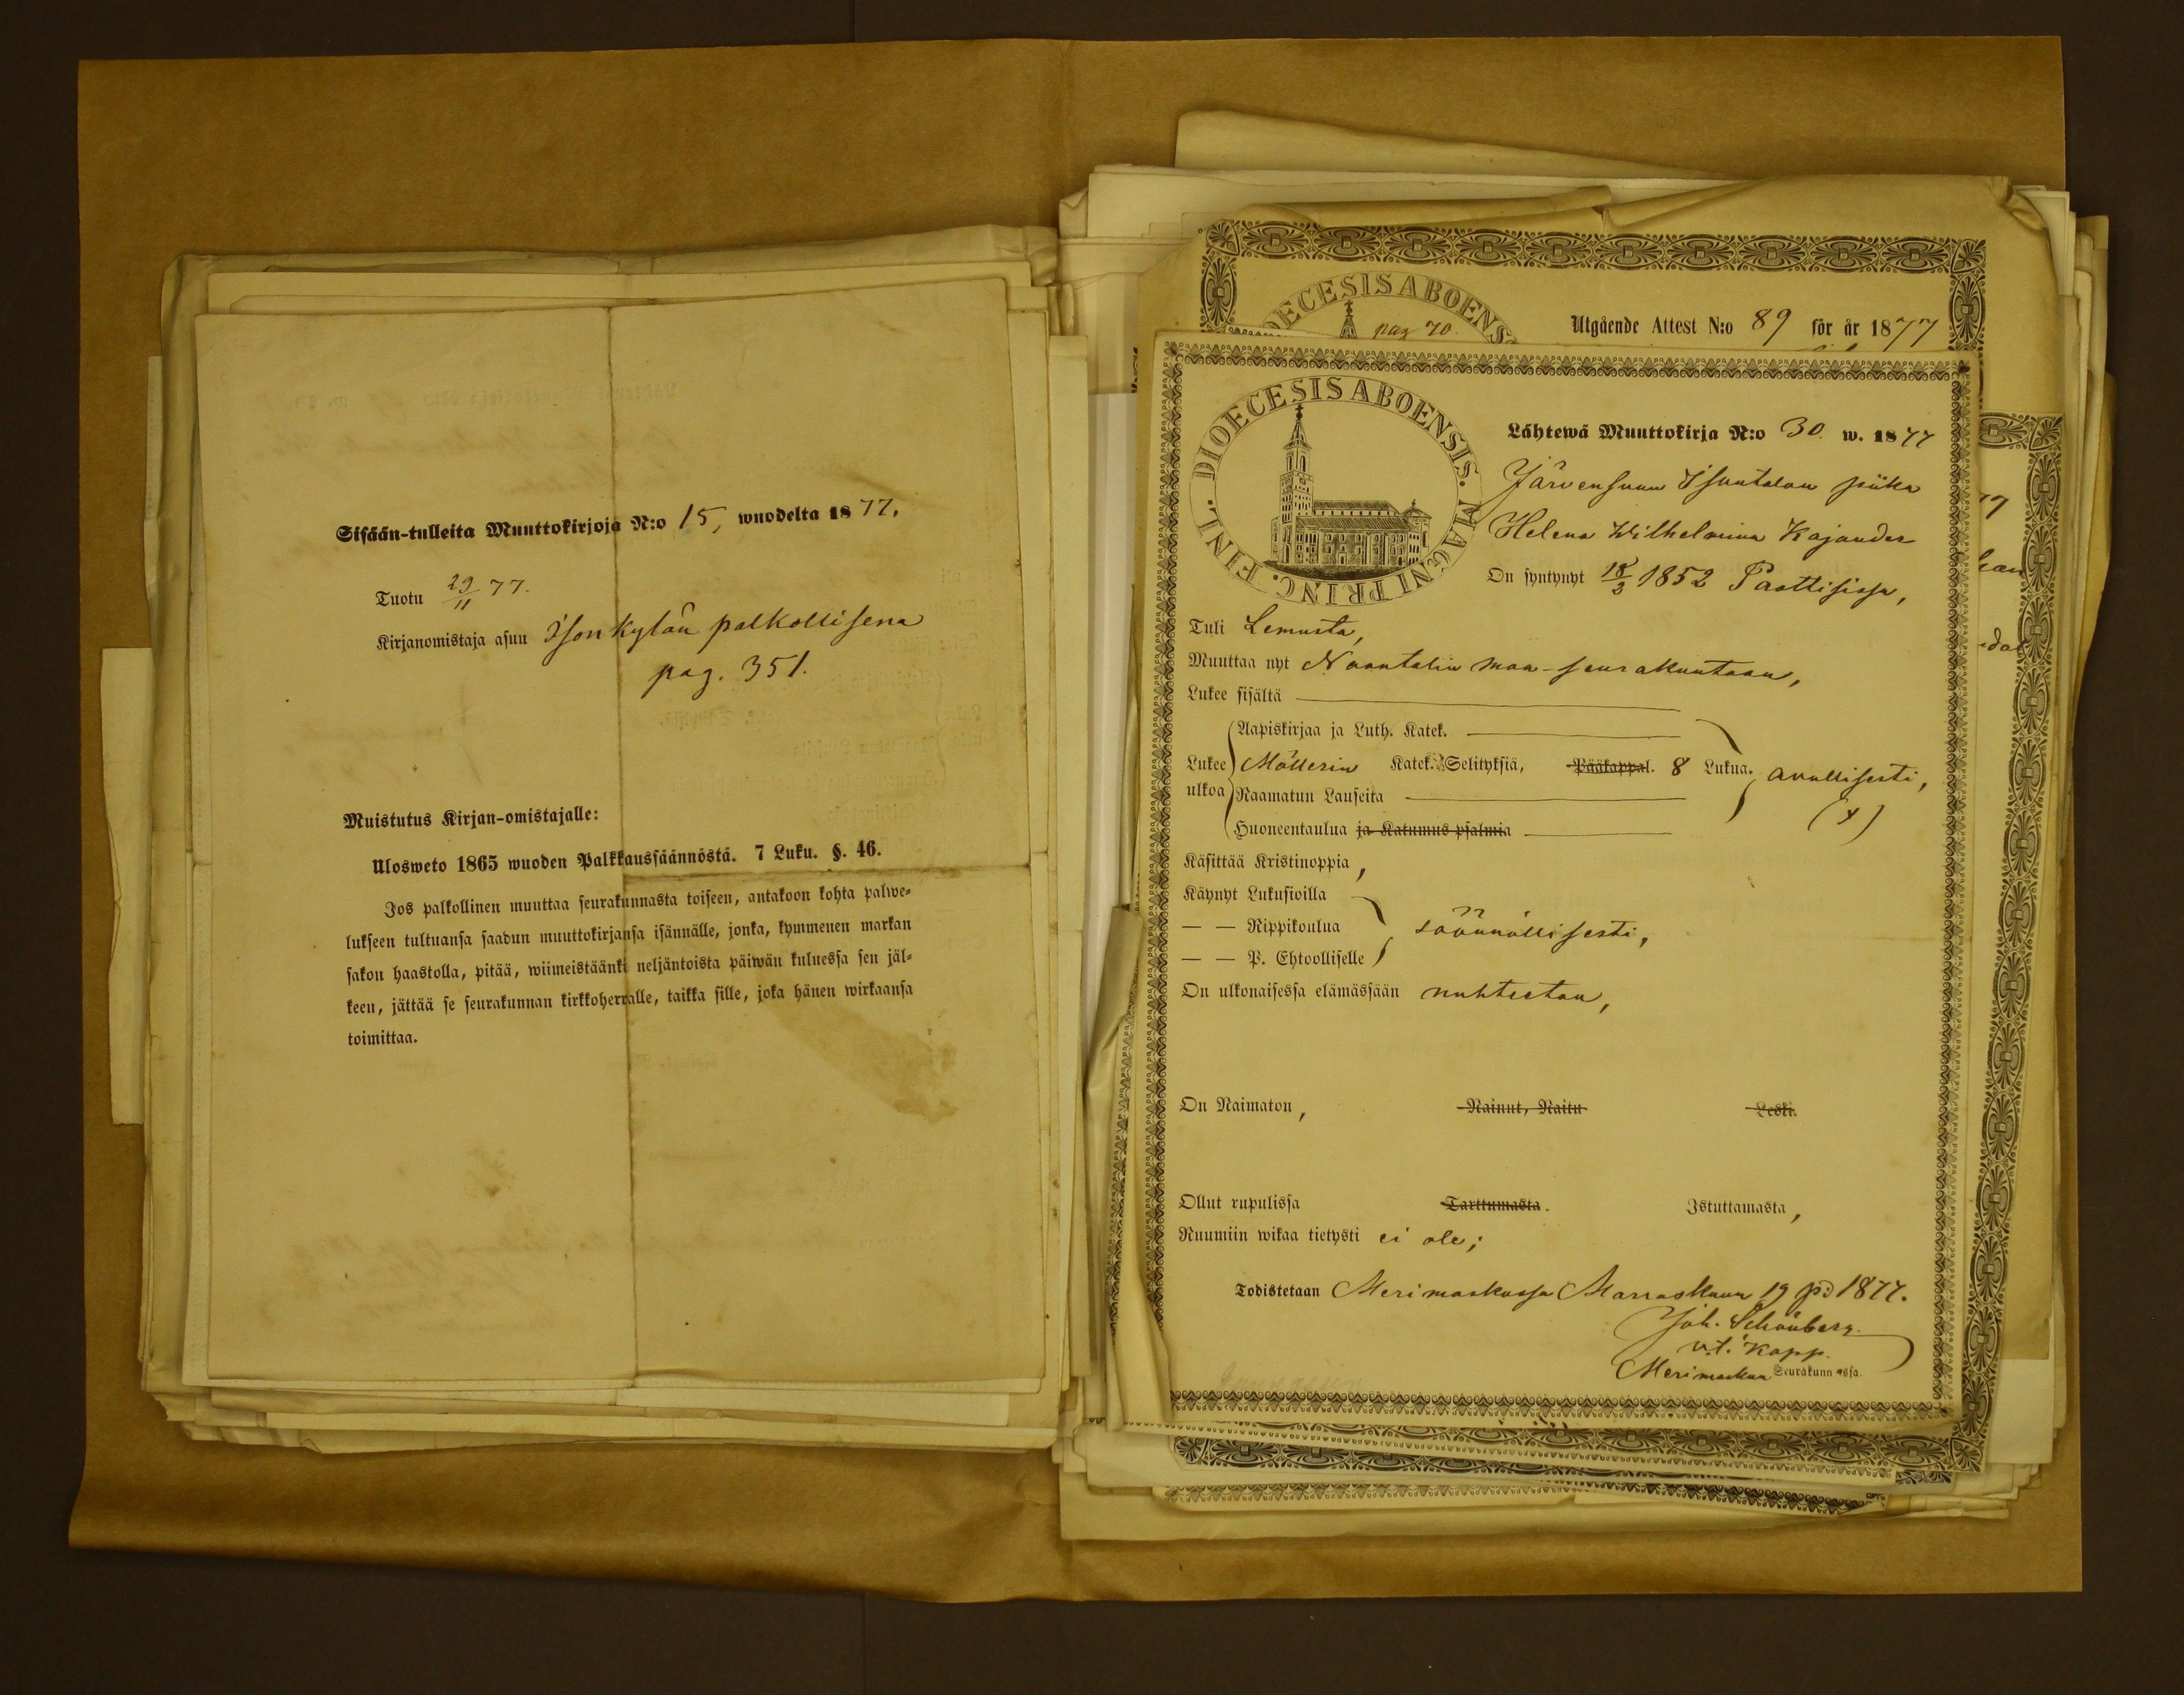 Sisään-tulleita Muuttokirjoja N:o 15, wuodelta 1877.
Tuotu 29/11 77.
Kirjanomistaja asuu Isonkylän palkollisena
pag. 351.
Muistutus Kirjan-omistajalle:
Ulosweto 1865 wuoden Palkkaussäännöstä. 7 Luku. §. 46.
Jos palkollinen muuttaa seurakunnasta toiseen, antakoon kohta palwe-
lukseen tultuansa saadun muuttokirjansa isännälle, jonka, kymmenen markan
sakon haastolla, pitää, wiimeistäänki neljäntoista päiwän kuluessa sen jäl-
keen, jättää se seurakunnan kirkkoherralle, taikka sille, joka hänen wirkaansa
toimittaa.
DIOECESIS ABOENS
pag 70.
Utgående Attest N:o 89 för år 1877
DIOECESIS ABOENSIS. MAGNI PRINC. FINL.
Lähtewä Muuttokirja N:o 30. w. 1877
Järvensuun Isontalon piika
Helena Wilhelmina Kajander
On syntynyt 18/3 1852 Paattisissa,
Tuli Lemusta,
Muuttaa nyt Naantalin maa-seurakuntaan,
Lukee sisältä
Aapiskirjaa ja Luth. Katek.
Lukee ulkoa Möllerin Katek. Selityksiä, Pääkappal. 8 Lukua. avullisesti,
Raamatun Lauseita
Huoneentaulua ja Katumus psalmia
Käsittää Kristinoppia,
Käynyt Lukusioilla
— — Rippikoulua säännöllisesti,
— — P. Ehtoolliselle
On ulkonaisessa elämässään nuhteeton,
On Naimaton, Nainut, Naitu Leski.
Ollut rupulissa Tarttumasta. Istuttamasta,
Ruumiin wikaa tietysti ei ole;
Todistetaan Merimaskussa Marraskuun 19 pd 1877.
Joh. Schönberg.
v.t. Kapp.
Merimaskun Seurakunnassa.